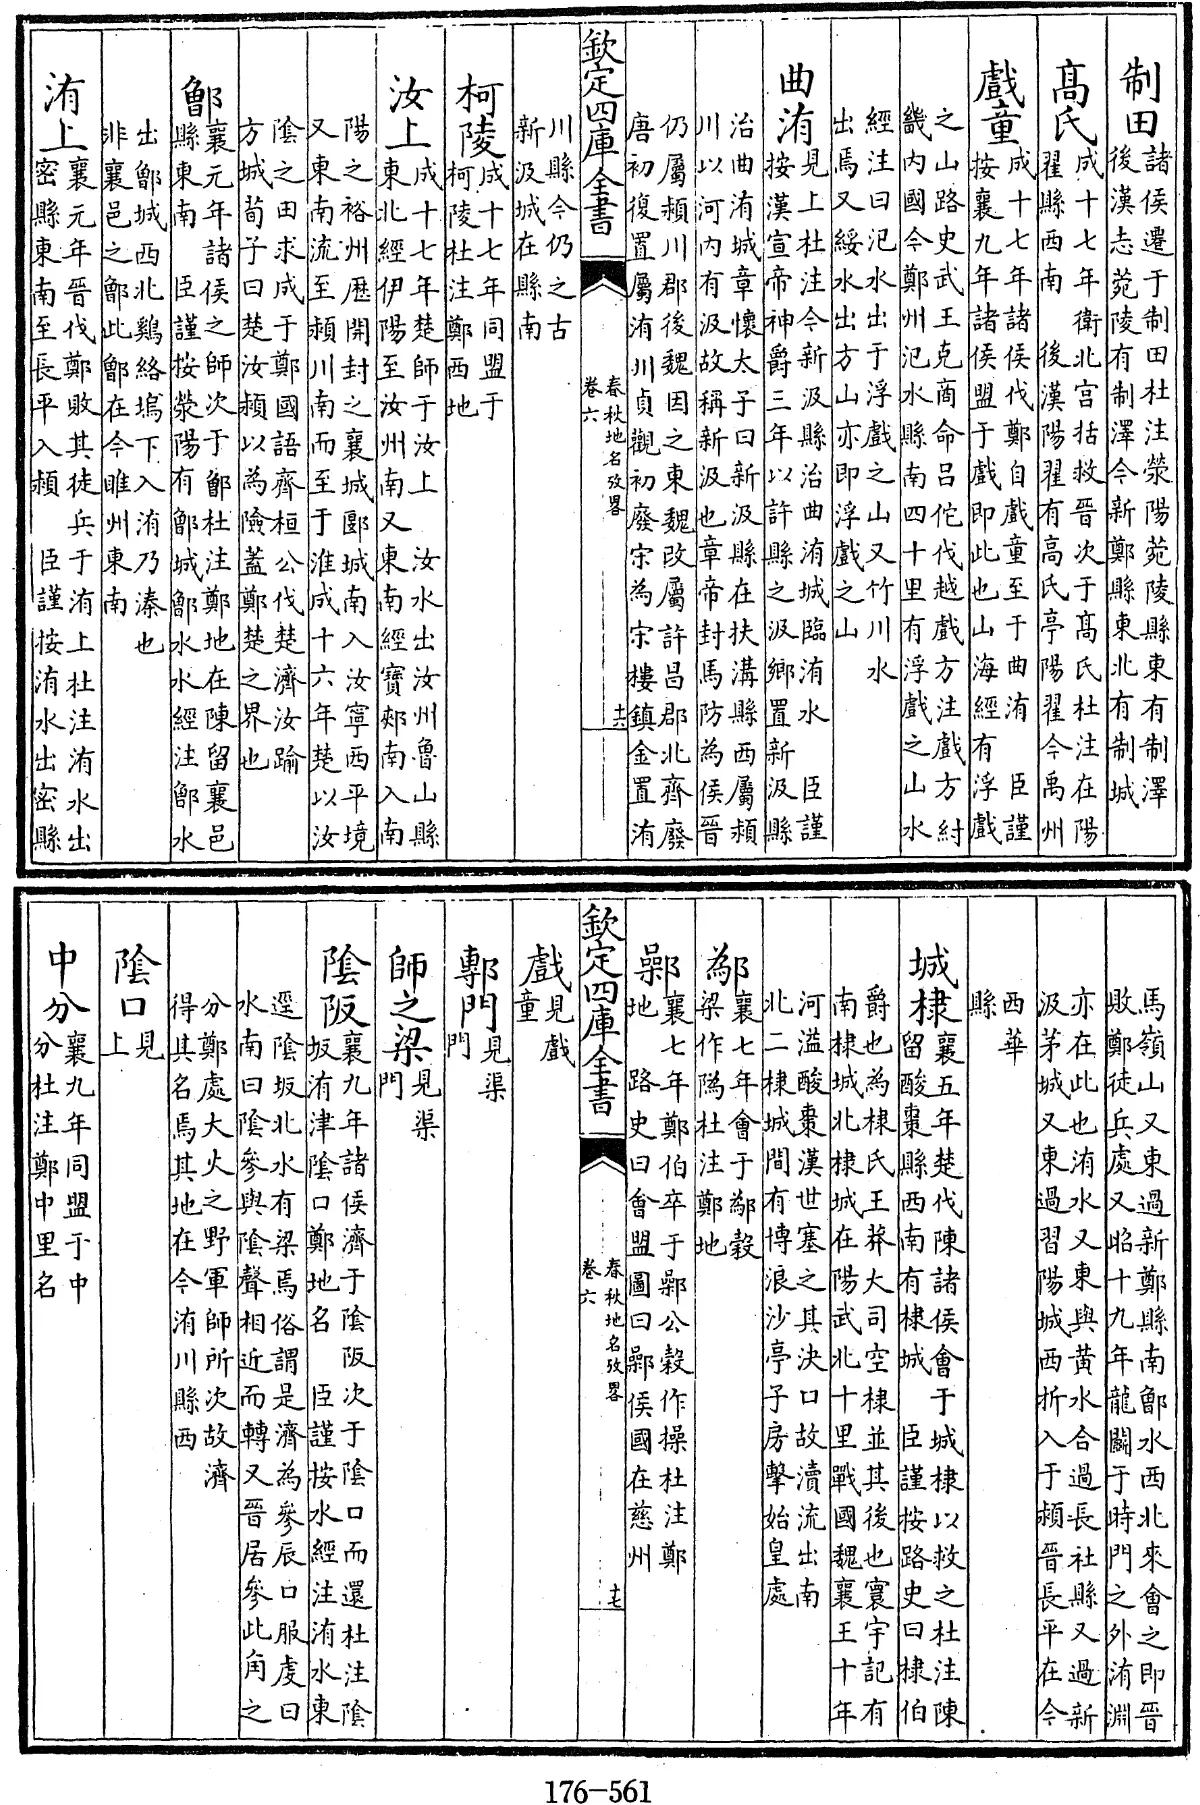 制田諸侯遷于制田杜注滎陽菀陵縣東有制澤
後漢志菀陵有制澤今新鄭縣東北有制城
高氏成十七年衛北宮括救晉次于高氏杜注在陽
翟縣西南　後漢陽翟有高氏亭陽翟今禹州
戲童成十七年諸侯伐鄭自戲童至于曲洧　臣謹
按襄九年諸侯盟于戲即此也山海經有浮戲
之山路史武王克商命呂佗伐越戲方注戲方紂
畿内國今鄭州汜水縣南四十里有浮戲之山水
經注曰汜水出于浮戲之山又竹川水
出焉又綏水出方山亦即浮戲之山
曲洧見上杜注今新汲縣治曲洧城臨洧水　臣謹
按漢宣帝神爵三年以許縣之汲鄉置新汲縣
治曲洧城章懷太子曰新汲縣在扶溝縣西屬潁
川以河内有汲故稱新汲也章帝封馬防為侯晉
仍屬潁川郡後魏因之東魏改屬許昌郡北齊廢
唐初復置屬洧川貞觀初廢宋為宋樓鎮金置洧
欽定四庫全書
春秋地名攷畧
卷六
十六
川縣今仍之古
新汲城在縣南
柯陵成十七年同盟于
柯陵杜注鄭西地
汝上成十七年楚師于汝上　汝水出汝州魯山縣
東北經伊陽至汝州南又東南經寶郟南入南
陽之裕州歷開封之襄城郾城南入汝寧西平境
又東南流至潁川南而至于淮成十六年楚以汝
隂之田求成于鄭國語齊桓公伐楚濟汝踰
方城荀子曰楚汝潁以為險蓋鄭楚之界也
鄫襄元年諸侯之師次于鄫杜注鄭地在陳留襄邑
縣東南　臣謹按滎陽有鄫城鄫水水經注鄫水
出鄫城西北鷄絡塢下入洧乃溱也
非襄邑之鄫此鄫在今睢州東南
洧上襄元年晉伐鄭敗其徒兵于洧上杜注洧水出
密縣東南至長平入潁　臣謹按洧水出密縣
馬嶺山又東過新鄭縣南鄫水西北來會之即晉
敗鄭徒兵處又昭十九年龍鬭于時門之外洧淵
亦在此也洧水又東與黃水合過長社縣又過新
汲茅城又東過習陽城西折入于潁晉長平在今
西華
縣
城棣襄五年楚伐陳諸侯會于城棣以救之杜注陳
留酸棗縣西南有棣城　臣謹按路史曰棣伯
爵也為棣氏王莽大司空棣並其後也寰宇記有
南棣城北棣城在陽武北十里戰國魏襄王十年
河溢酸棗漢世塞之其決口故瀆流出南
北二棣城間有博浪沙亭子房擊始皇處
鄬襄七年會于鄬穀
梁作隝杜注鄭地
鄵襄七年鄭伯卒于鄵公穀作操杜注鄭
地　路史曰會盟圖曰鄵侯國在慈州
欽定四庫全書
春秋地名攷畧
卷六
十七
戲見戲
童
鄟門見渠
門
師之梁見渠
門
隂阪襄九年諸侯濟于隂阪次于隂口而還杜注隂
坂洧津隂口鄭地名　臣謹按水經注洧水東
逕隂坂北水有梁焉俗謂是濟為參辰口服虔曰
水南曰隂參與隂聲相近而轉又晉居參此角之
分鄭處大火之野軍師所次故濟
得其名焉其地在今洧川縣西
隂口見
上
中分襄九年同盟于中
分杜注鄭中里名
176-561